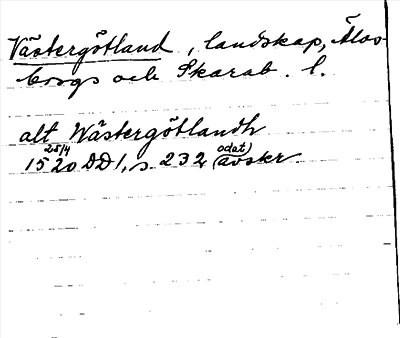 Västergötland, landskap, Älvs-
borgs och Skarab. l.
alt Wästergötlandh
1520 25/4 DD 1, s. 232 (odat) avskr.